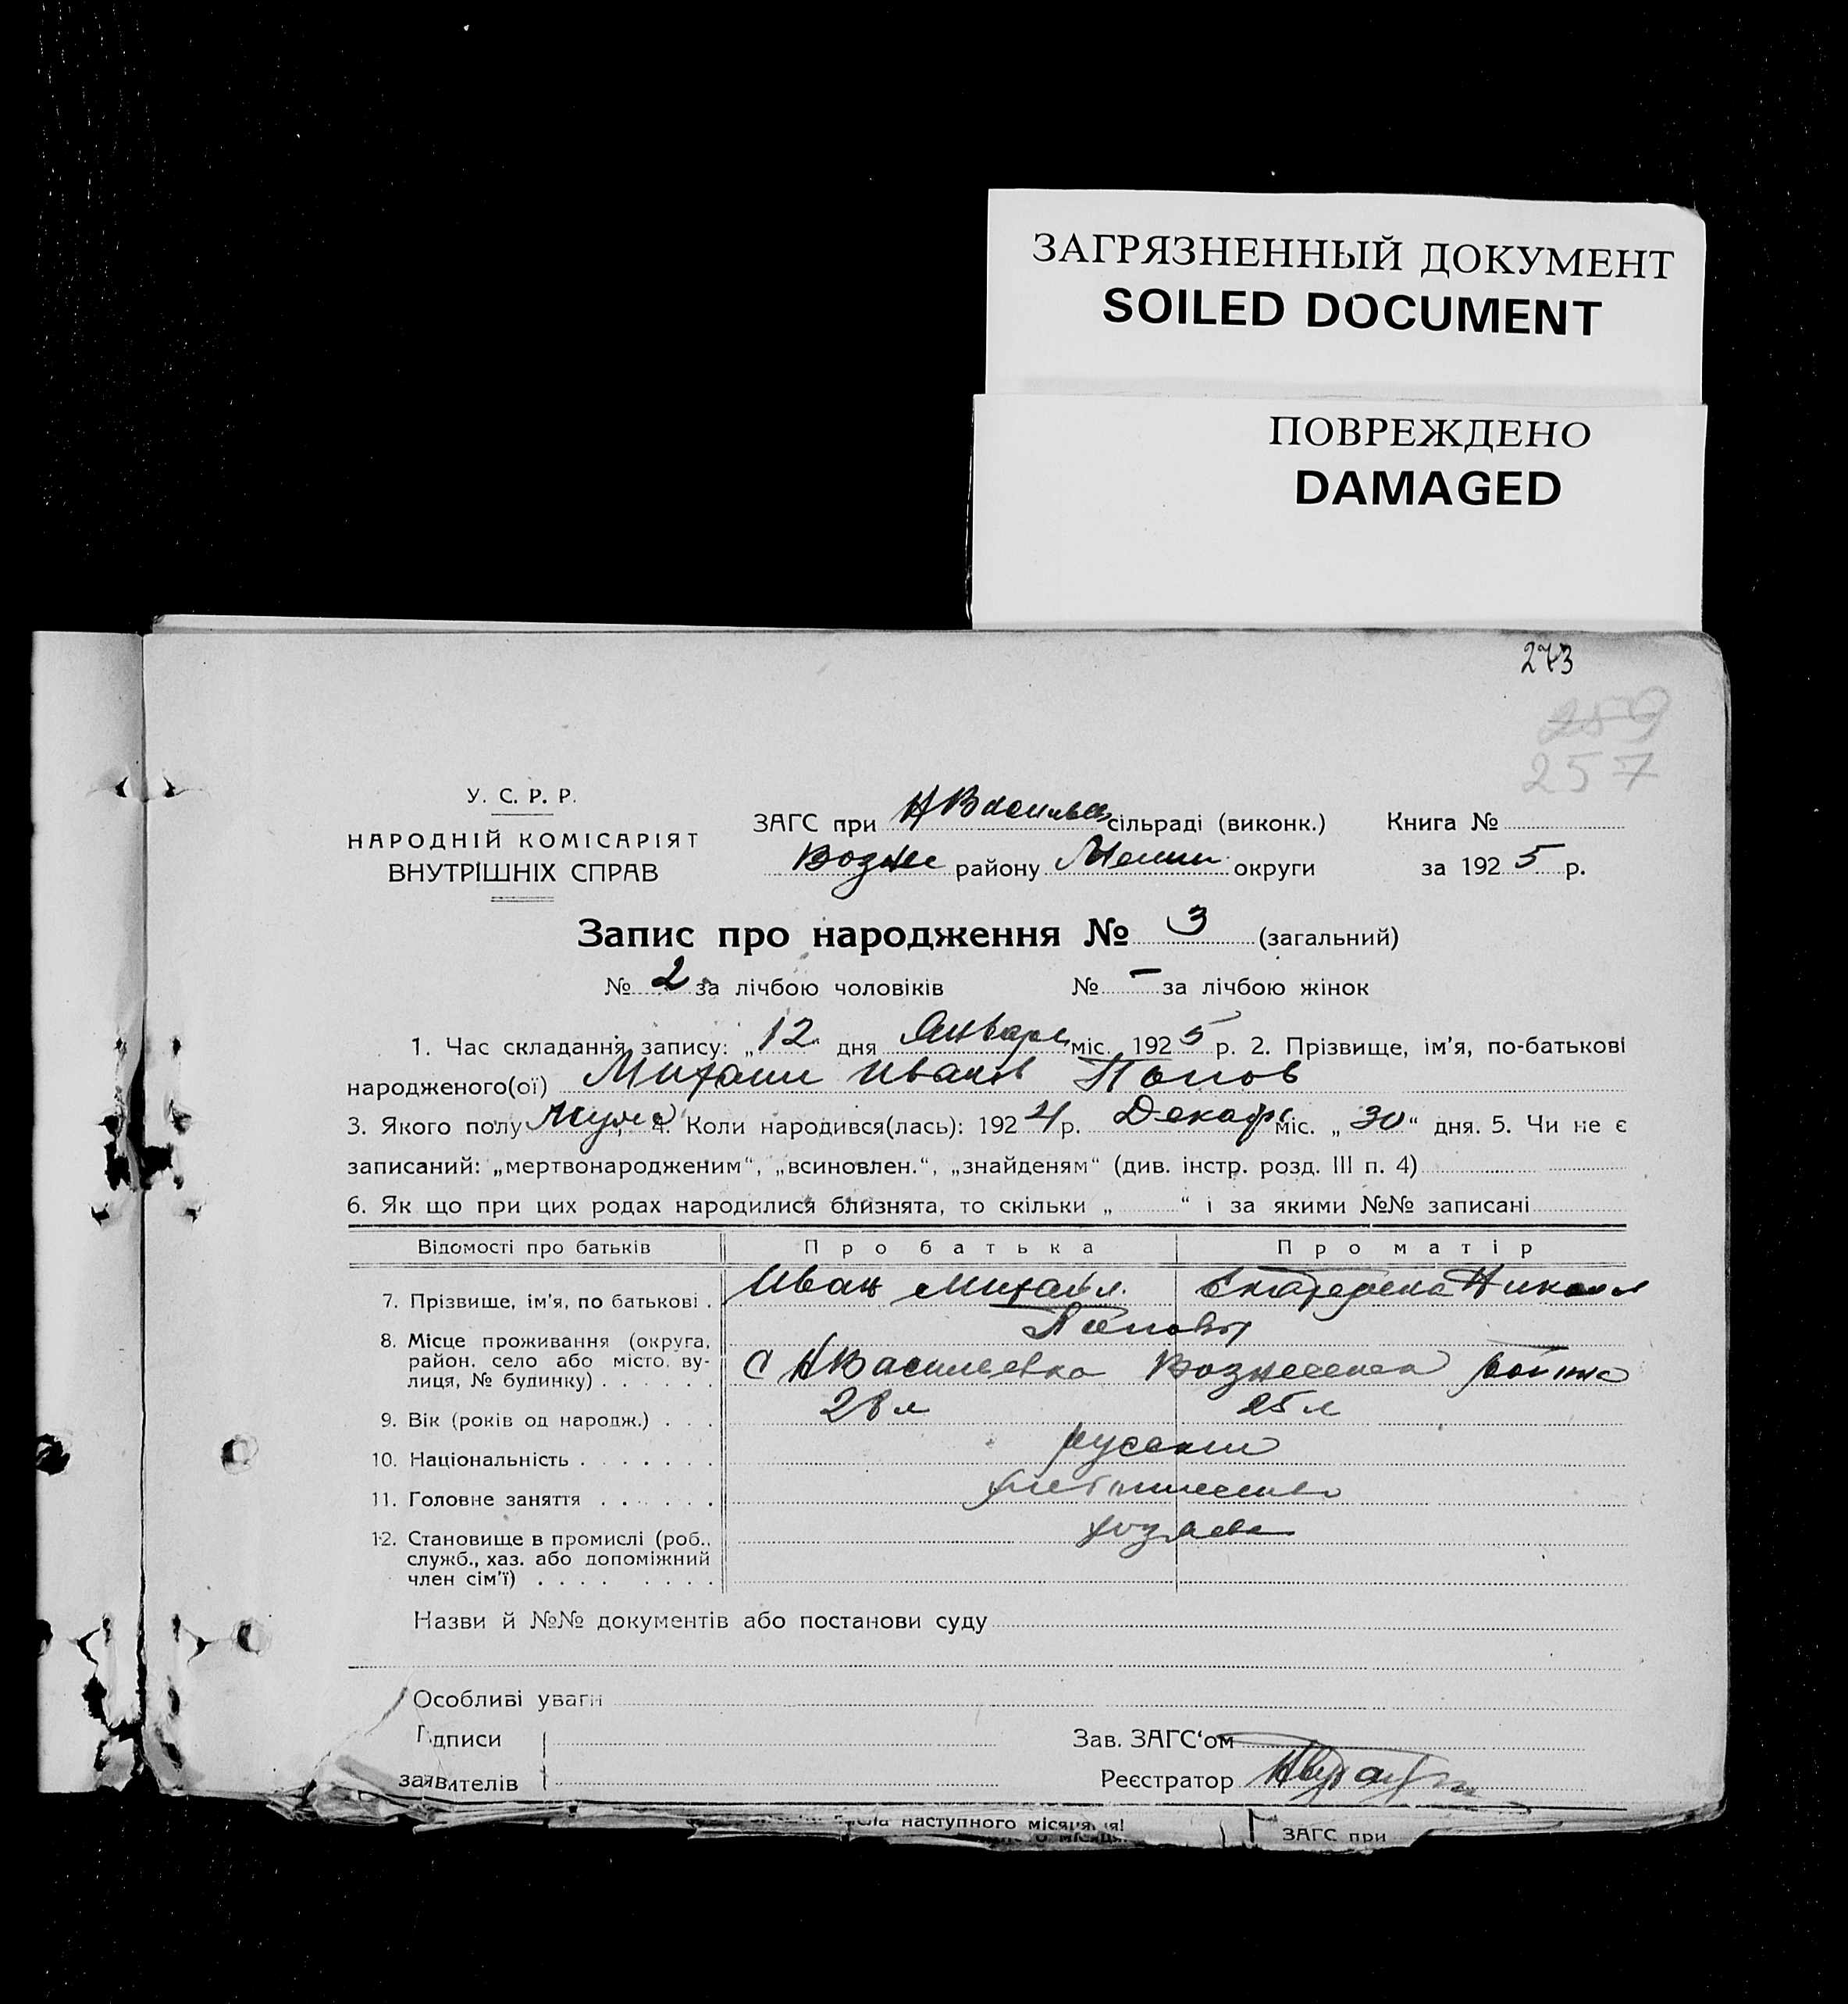 ЗАГРЯЗНЕННЫЙ ДОКУМЕНТ
SOILED DOCUMENT
ПОВРЕЖДЕНО
DAMAGED
273
259
257
У. С. Р. Р.
НАРОДНІЙ КОМІСАРІЯТ
ВНУТРІШНІХ СПРАВ
ЗАГС при Н Васильев сільраді (виконк.) Книга №
Возне району Мелит округи за 1925 р.
Запис про народження № 3 (загальний)
№ 2 за лічбою чоловіків № - за лічбою жінок
1. Час складання запису: „12" дня Января міс. 1925 р. 2. Прізвище, ім'я, по-батькові
народженого(ої) Михаил Иванов Попов
3. Якого полу Муж 4. Коли народився(лась): 1924 р. Декабр міс. „30" дня. 5. Чи не є
записаний: „мертвонародженим", „всиновлен.", „знайденям" (див. інстр. розд. III п. 4)
6. Як що при цих родах народилися близнята, то скільки „ " і за якими №№ записані
Відомості про батьків Про батька Про матір
7. Прізвище, ім'я, по батькові . Иван Михайл. Екатерина Никол
Поповы
8. Місце проживання (округа, район, село або місто, вулиця, № будинку) С Н Васильевка Вознесенск района
9. Вік (років од народж.) 28 л 25 л
10. Національність русские
11. Головне заняття
12. Становище в промислі (роб., служб., хаз. або допоміжний член сім'ї) хозяева
Назви й №№ документів або постанови суду
Особливі уваги
дписи Зав. ЗАГС'ом
заявителів Реєстратор
наступного місяця!
ЗАГС при